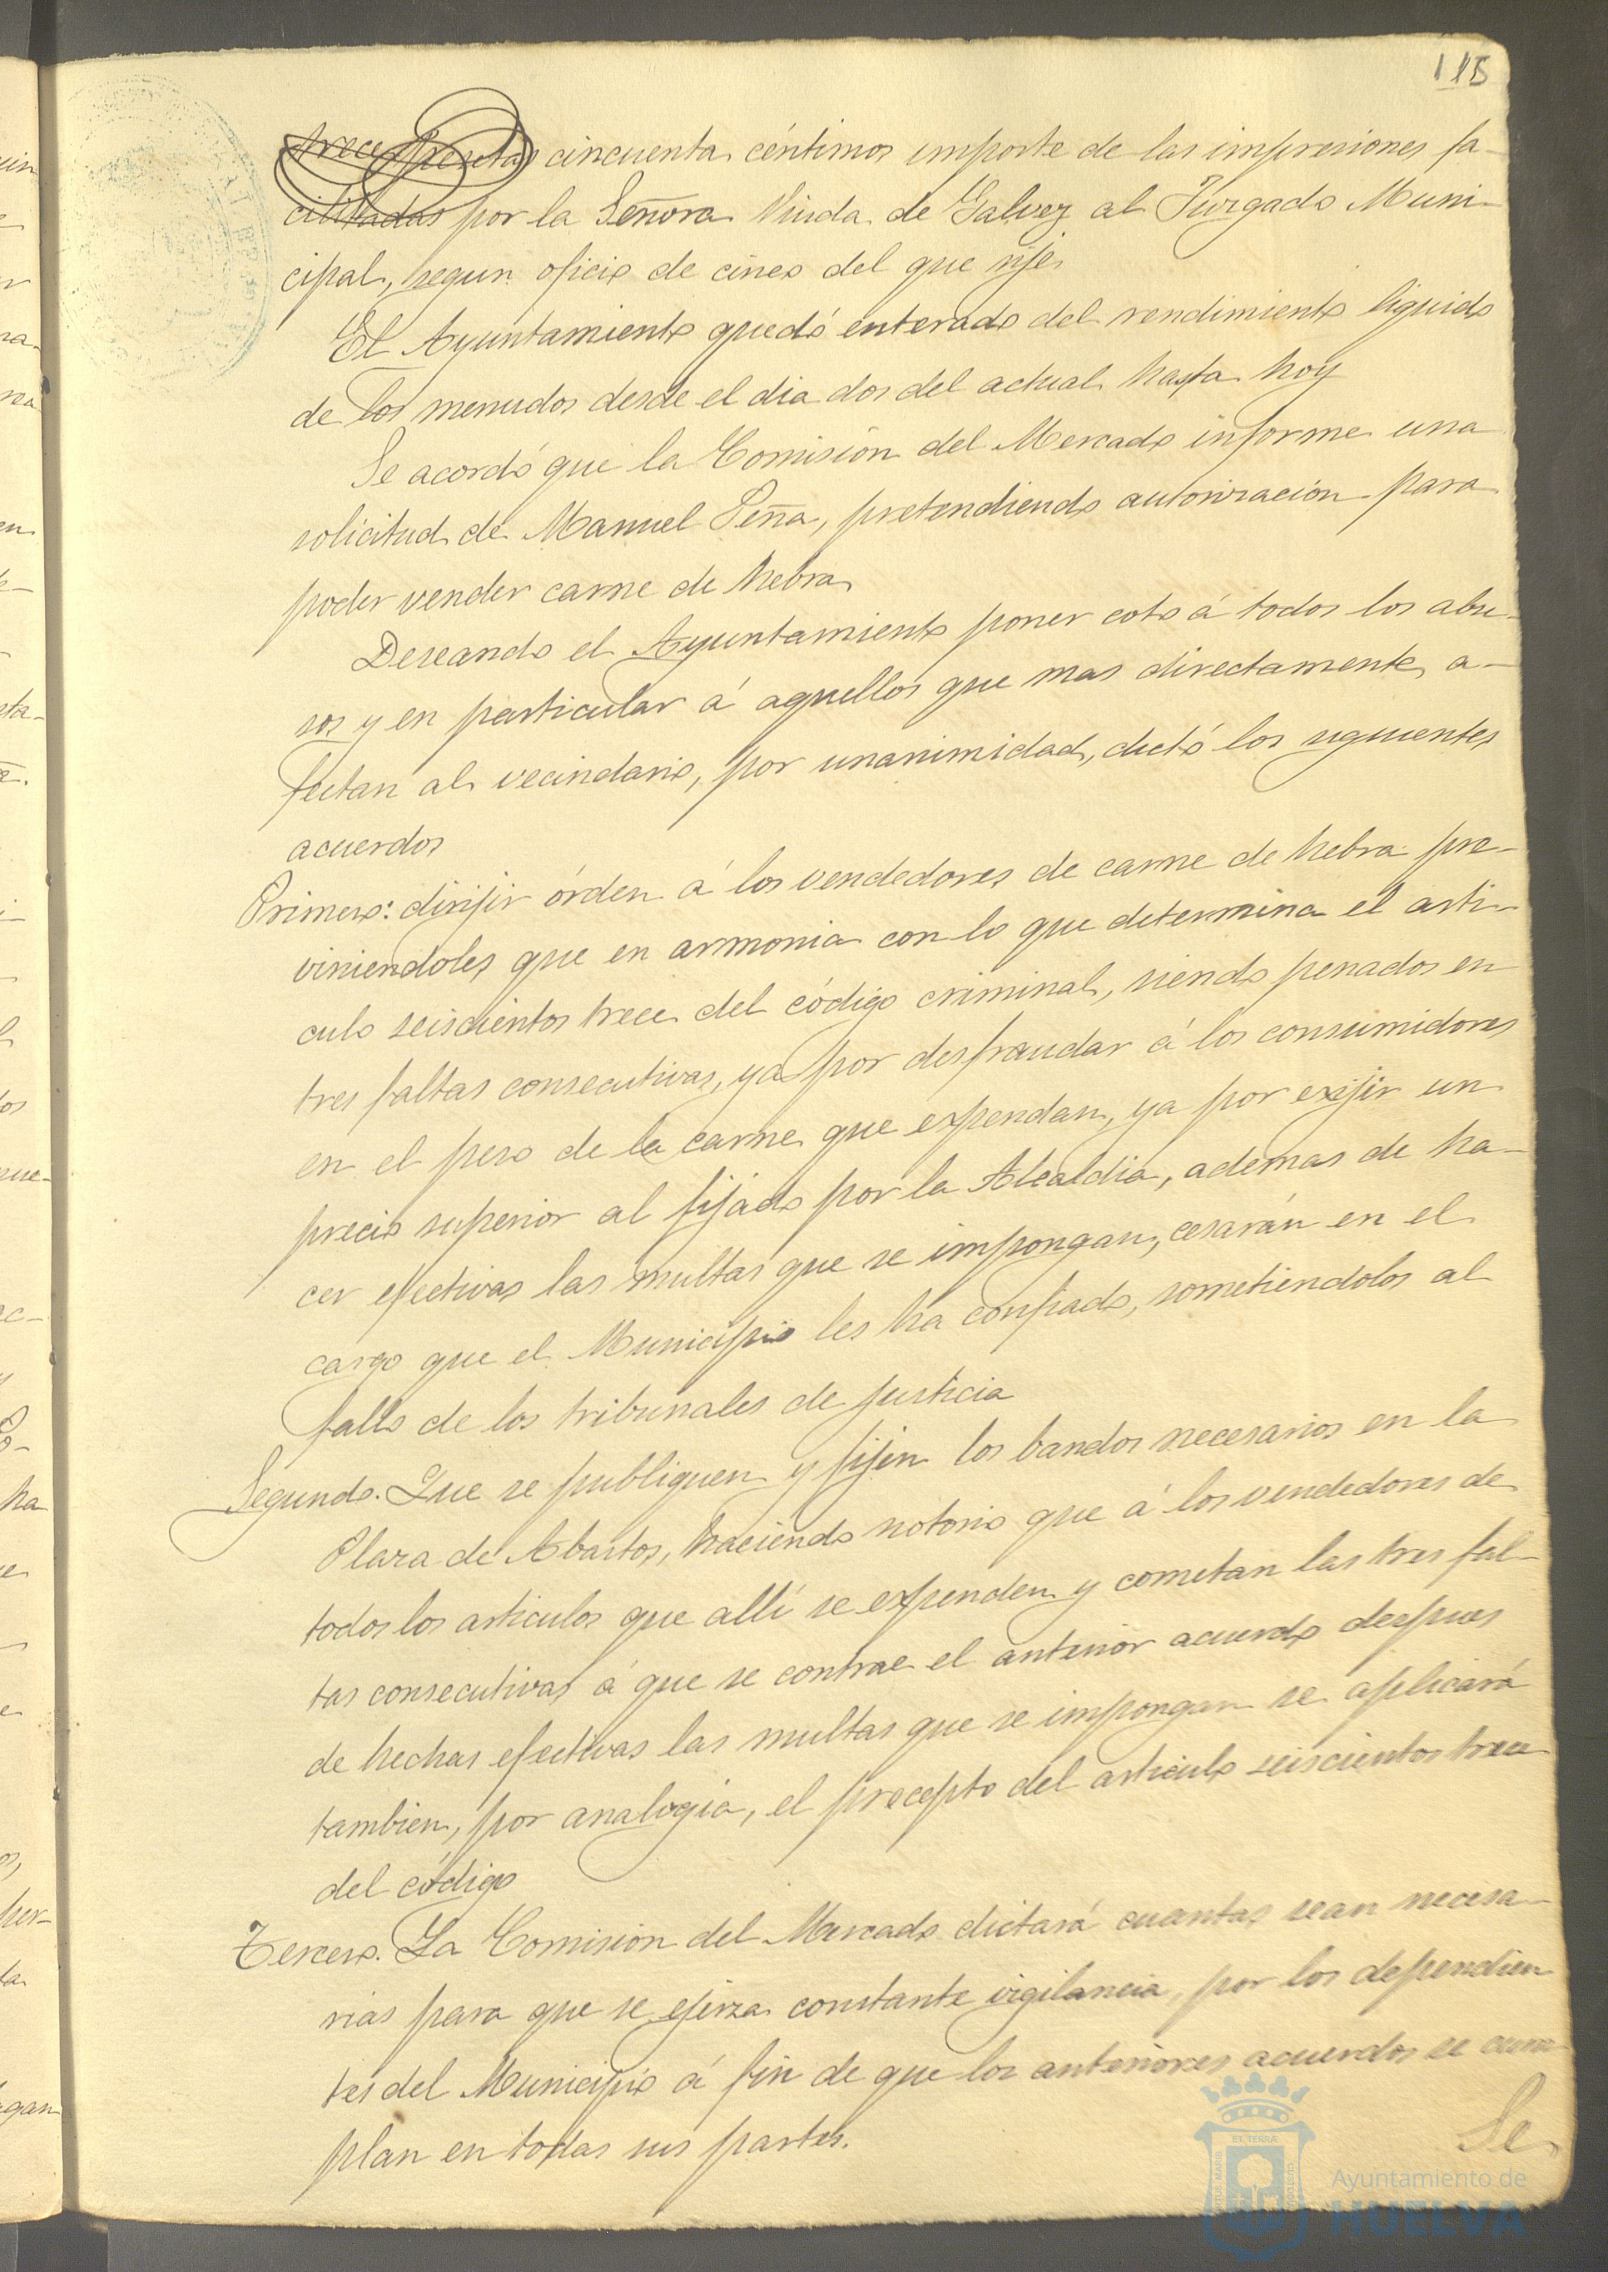 115
trece pesetas cincuenta céntimos importe de las impresiones fa-
cilitadas por la Señora Viuda de Galvez al Juzgado Muni-
cipal, segun oficio de cinco del que rije.
El Ayuntamiento quedó enterado del rendimiento liquido
de los menudos desde el dia dos del actual hasta hoy
Se acordó que la Comisión del Mercado informe una
solicitud de Manuel Peña, pretendiendo autorización para
poder vender carne de hebra
Deseando el Ayuntamiento poner coto á todos los abu-
sos y en particular á aquellos que mas directamente a-
fectan al vecindario, por unanimidad, dictó los siguientes
acuerdos
Primero: dirijir órden á los vendedores de carne de hebra pre-
viniendoles que en armonia con lo que determina el arti-
culo seiscientos trece del código criminal, siendo penados en
tres faltas consecutivas, ya por desfraudar á los consumidores
en el peso de la carne que expendan, ya por exijir un
precio superior al fijado por la Alcaldia, ademas de ha-
cer efectivas las multas que se impongan, cesarán en el
cargo que el Municipio les ha confiado, sometiendolos al
fallo de los tribunales de justicia
Segundo. Que se publiquen y fijen los bandos necesarios en la
Plaza de Abastos, haciendo notorio que á los vendedores de
todos los articulos que alli se expenden y cometan las tres fal-
tas consecutivas á que se contrae el anterior acuerdo despues
de hechas efectivas las multas que se impongan se aplicará
tambien, por analogia, el precepto del articulo seiscientos trece
del código
Tercero. La Comisión del Mercado dictará cuantas sean necesa-
rias para que se ejerza constante vigilancia, por los dependien
tes del Municipio á fin de que los anteriores acuerdos se cum-
plan en todas sus partes.
Se
Ayuntamiento de
HUELVA